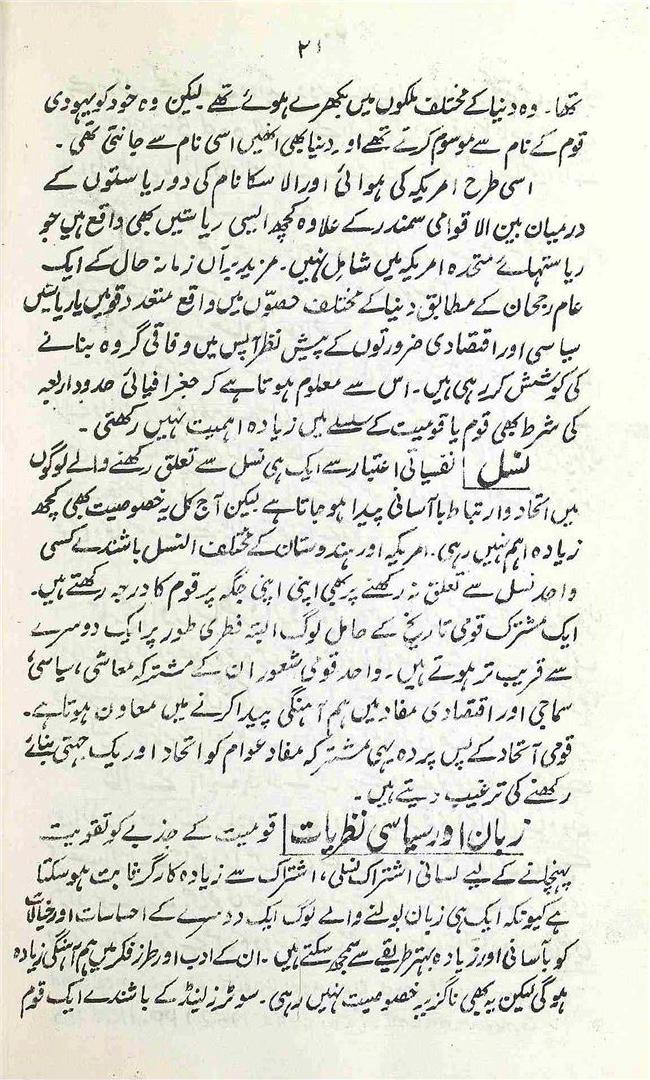 ۲۱
تھا۔ وہ دنیا کے مختلف ملکوں میں بکھرے ہوئے تھے۔ لیکن وہ خود کو یہودی
قوم کے نام سے موسوم کرتے تھے اور دنیا بھی انھیں اسی نام سے جانتی تھی۔
اسی طرح امریکہ کی ہوائی اور الاسکا نام کی دو ریاستوں کے
درمیان بین الاقوامی سمندر کے علاوہ کچھ ایسی ریاستیں بھی واقع ہیں جو
ریاستہائے متحدہ امریکہ میں شامل نہیں۔ مزید برآں زمانہ حال کے ایک
عام رجحان کے مطابق دنیا کے مختلف حصوّں میں واقع متعدد قومیں یا ریاستیں
سیاسی اور اقتصادی ضرورتوں کے پیش نظر آپس میں وفاقی گروہ بنانے
کی کوشش کر رہی ہیں۔ اس سے معلوم ہوتا ہے کہ جغرافیائی حدود اربعہ
کی شرط بھی قوم یا قومیت کے سلسلے میں زیادہ اہمیت نہیں رکھتی۔
نسل | نفسیاتی اعتبار سے ایک ہی نسل سے تعلق رکھنے والے لوگوں
میں اتحاد و ارتباط باآسانی پیدا ہو جاتا ہے لیکن آج کل یہ خصوصیت بھی کچھ
زیادہ اہم نہیں رہی۔ امریکہ اور ہندوستان کے مختلف النسل باشندے کسی
واحد نسل سے تعلق نہ رکھنے پر بھی اپنی اپنی جگہ پر قوم کا درجہ رکھتے ہیں۔
ایک مشترک قومی تاریخ کے حامل لوگ البتہ فطری طور پر ایک دوسرے
سے قریب تر ہوتے ہیں۔ واحد قومی شعور ان کے مشترکہ معاشی، سیاسی،
سماجی اور اقتصادی مفاد میں ہم آہنگی پیدا کرنے میں معاون ہوتا ہے۔
قومی اتحاد کے پس پردہ یہی مشترکہ مفاد عوام کو اتحاد اور یک جہتی بنائے
رکھنے کی ترغیب دیتے ہیں۔
زبان اور سیاسی نظریات | قومیت کے جذبے کو تقویت
پہنچانے کے لیے لسانی اشتراک نسلی، اشتراک سے زیادہ کارگر ثابت ہو سکتا
ہے کیونکہ ایک ہی زبان بولنے والے لوگ ایک دوسرے کے احساسات اور خیالات
کو بآسانی اور زیادہ بہتر طریقے سے سمجھ سکتے ہیں۔ ان کے ادب اور طرز فکر میں ہم آہنگی زیادہ
ہوگی لیکن یہ بھی ناگزیر خصوصیت نہیں رہی۔ سوئٹزرلینڈ کے باشندے ایک قوم